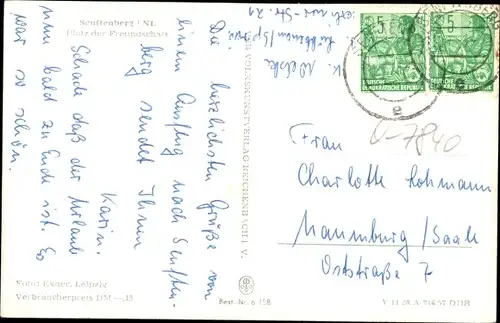 Senftenberg / NL
Platz der Freundschaft
Die herzlichsten Grüße von
einem Ausflug nach Senften-
berg sendet Ihnen
Karin.
Schade daß der Urlaub
nun bald zu Ende ist. Es
war so schön.
Foto: Exner, Leipzig
Verbraucherpreis DM —,15
VOLKSKUNSTVERLAG REICHENBACH I. V.
Best.-Nr. 6 158
V 11 28 A
DDR
DEUTSCHE
DEMOKRATISCHE REPUBLIK
DEUTSCHE
DEMOKRATISCHE REPUBLIK
O-7840
Frau
Charlotte Lohmann
Naumburg/Saale
Oststraße 7